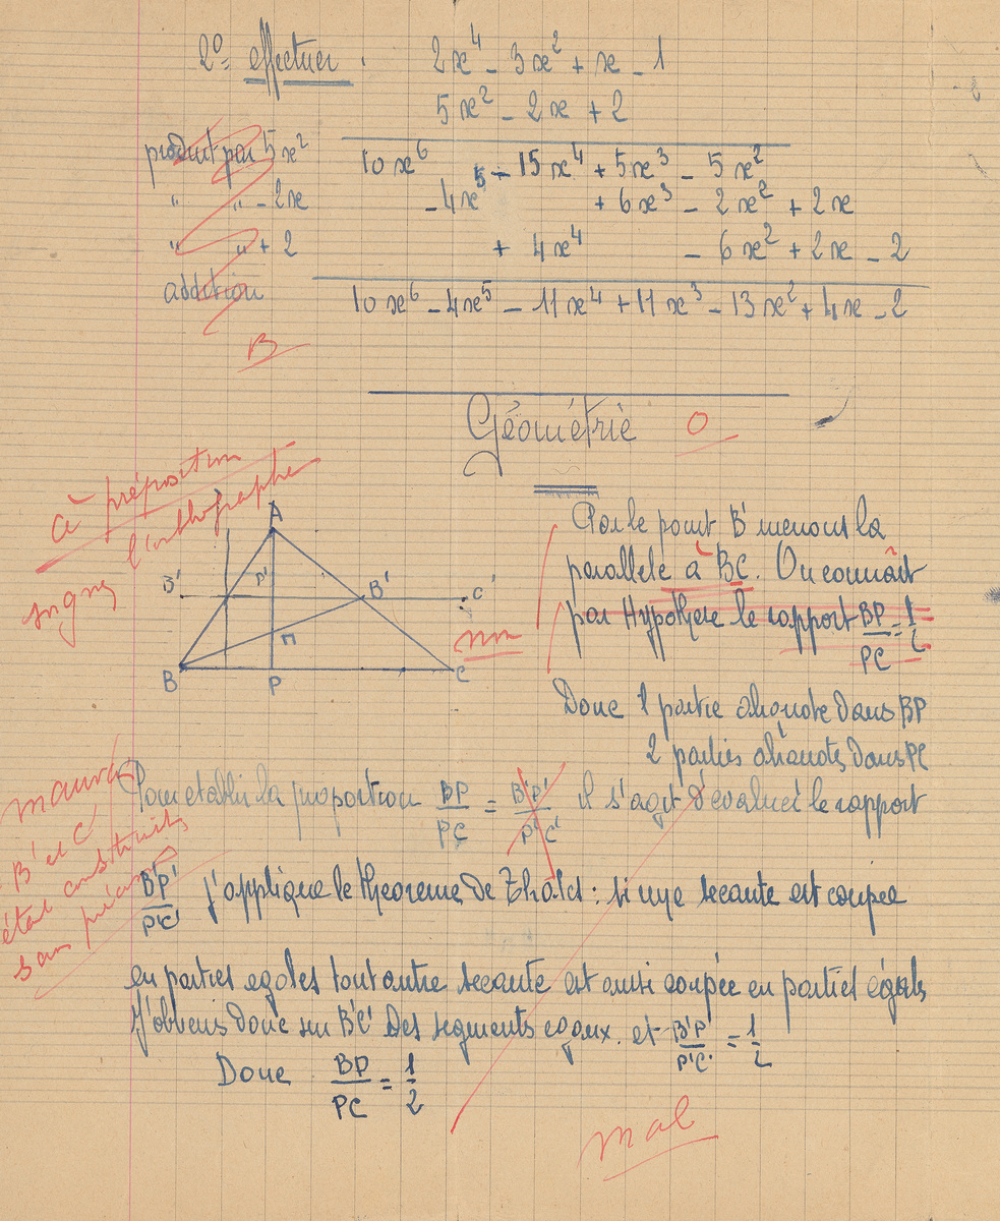 2º = effectuer. 2x⁴ - 3x² + x - 1
5x² - 2x + 2
produit par 5x² 10x⁶ - 15x⁴ + 5x³ - 5x²
" " - 2x - 4x⁵ + 6x³ - 2x² + 2x
" " + 2 + 4x⁴ - 6x² + 2x - 2
addition 10x⁶ - 4x⁵ - 11x⁴ + 11x³ - 13x² + 4x - 2
B
Géométrie 0
à préposition
l'orthographe
A
B' P' B' C'
M
B P C
Par le point B' menons la
parallele à BC. On connait
par Hypothese le rapport BP/PC = 1/2
non
Donc 1 partie aliquote dans BP
2 parties aliquotes dans PC
Pour etablir la proportion BP/PC = B'P'/P'C' il s'agit d'evaluer le rapport
mauvais
B' et C'
étant construits
sans
B'P'/P'C' j'applique le theoreme de Thalès : si une secante est coupée
en parties egales tout autre secante est aussi coupée en parties égales
J'obtiens donc sur B'C' des segments egaux. et B'P'/P'C' = 1/2
Donc BP/PC = 1/2
mal